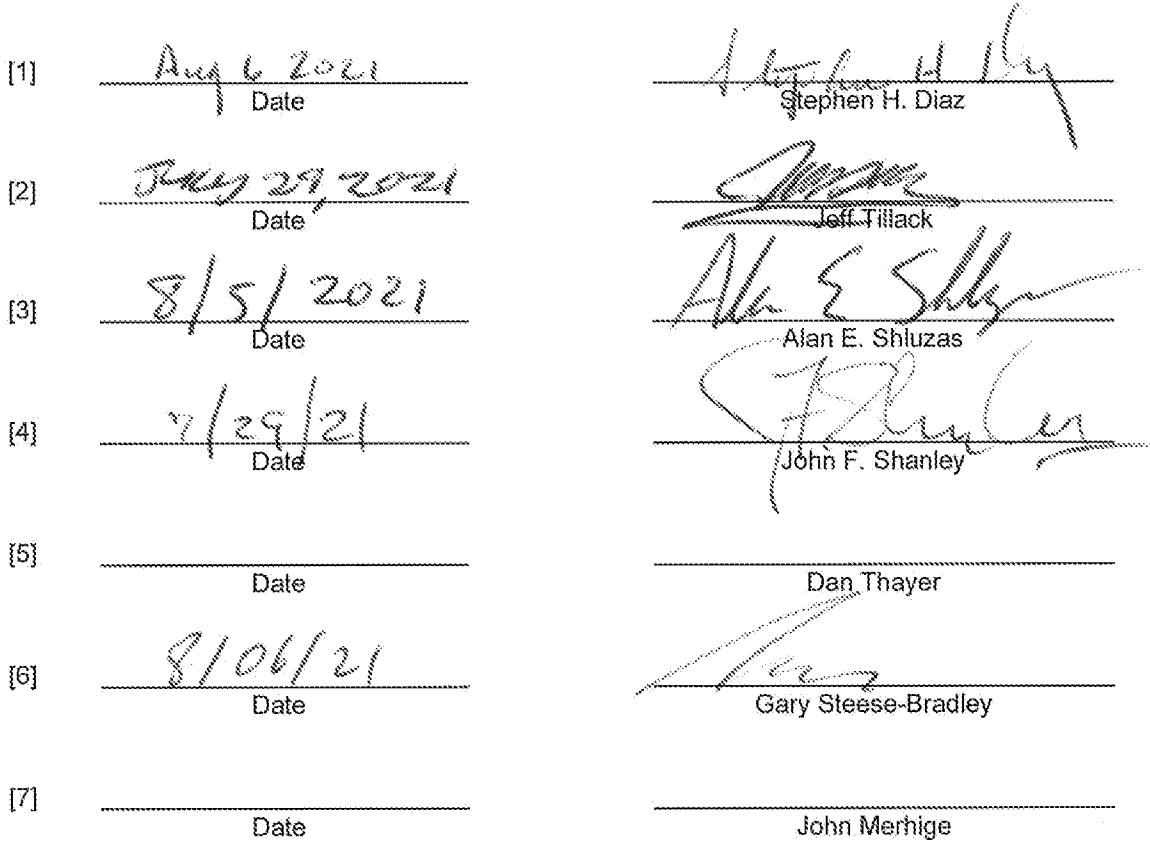 [1] Aug 6 2021 Stephen H Diaz
Date Stephen H. Diaz
[2] July 29, 2021
Date Jeff Tillack
[3] 8/5/2021 Alan E Shluzas
Date Alan E. Shluzas
[4] 7/29/21
Date John F. Shanley
[5]
Date Dan Thayer
[6] 8/06/21
Date Gary Steese-Bradley
[7]
Date John Merhige